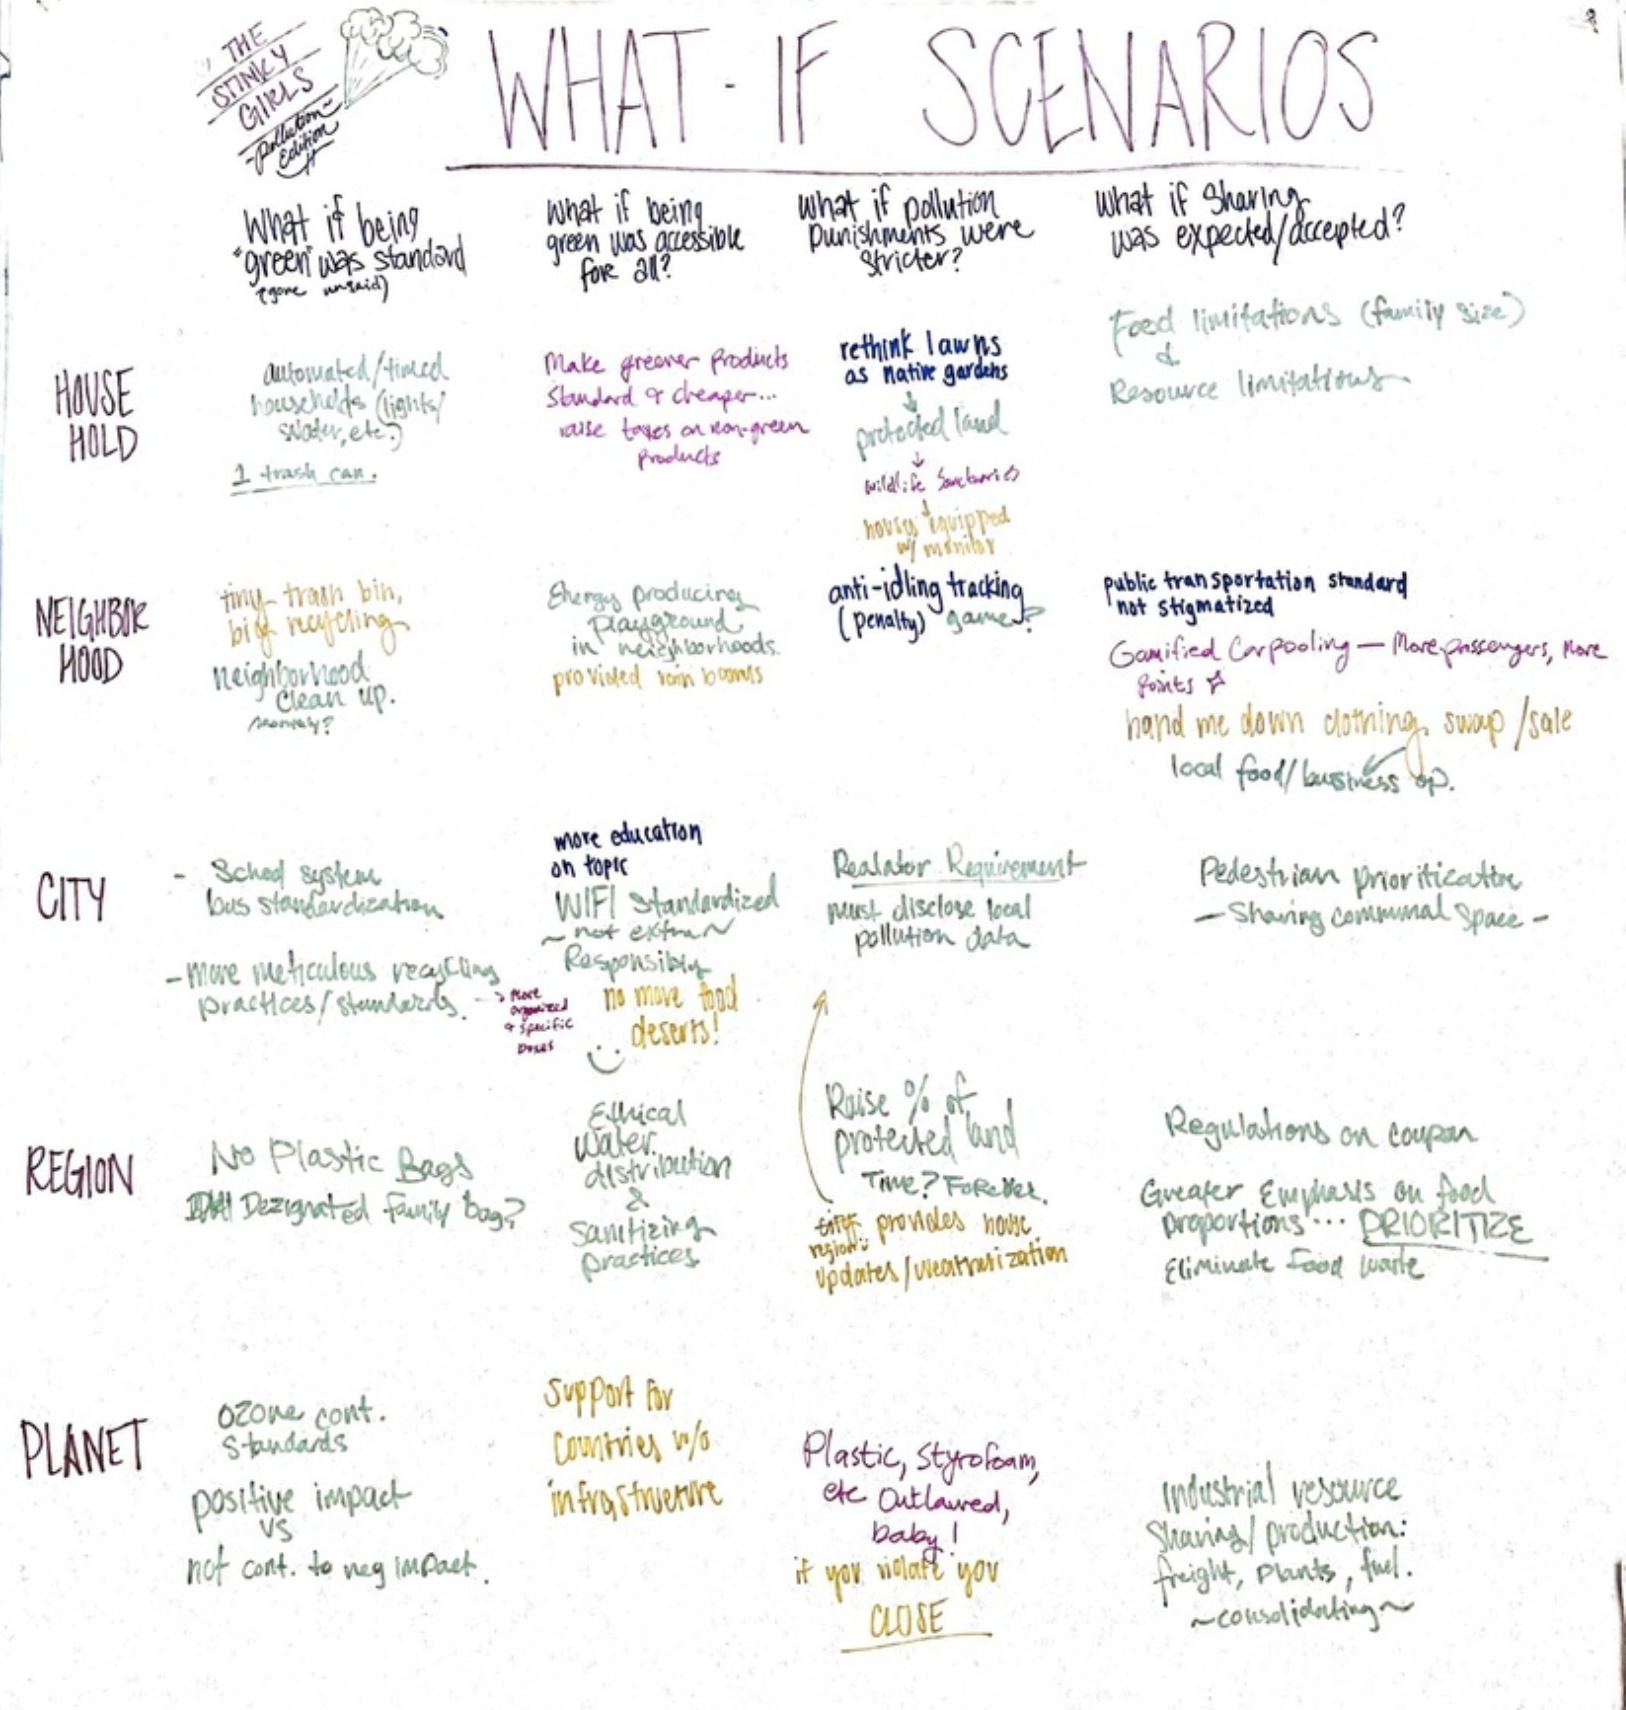 THE
STINKY
GIRLS
-Pollution-
Edition
WHAT-IF SCENARIOS
What if being
"green" was standard
(gone unsaid)
What if being
green was accessible
for all?
What if pollution
punishments were
stricter?
What if Sharing
was expected/accepted?
HOUSE
HOLD
automated/timed
households (lights/
water, etc.)
1 trash can.
Make greener Products
Standard & cheaper...
raise taxes on non-green
products
rethink lawns
as native gardens
↓
protected land
↓
wildlife Sanctuaries
↓
houses equipped
w/ monitor
Food limitations (family size)
&
Resource limitations
NEIGHBOR
HOOD
tiny trash bin,
big recycling
neighborhood
clean up.
Energy producing
playground
in neighborhoods.
provided rain
anti-idling tracking
(penalty) game?
public transportation standard
not stigmatized
Gamified Carpooling — More passengers, More
Points ☆
hand me down clothing swap/sale
local food/bussiness op.
CITY
- School system
bus standardization
- more meticulous recycling
practices/standards. →
More
organized
& specific
Boxes
more education
on topic
WIFI Standardized
~ not extra ~
Responsibly
no more food
deserts!
Realator Requirement
must disclose local
pollution data
Pedestrian prioritication
- Sharing communal Space -
REGION
No Plastic Bags
Dezignated family bag?
Ethical
Water
distribution
&
sanitizing
practices
Raise % of
protected land
Time? Forever.
city provides house
region
updates/weatherization
Regulations on coupon
Greater Emphasis on food
proportions... PRIORITIZE
Eliminate food waste
PLANET
ozone cont.
standards
positive impact
vs
not cont. to neg impact.
support for
Countries w/o
infrastructure
Plastic, Styrofoam,
etc Outlawed,
baby!
if you violate you
CLOSE
Industrial resource
Sharing/production:
freight, plants, fuel.
~consolidating~